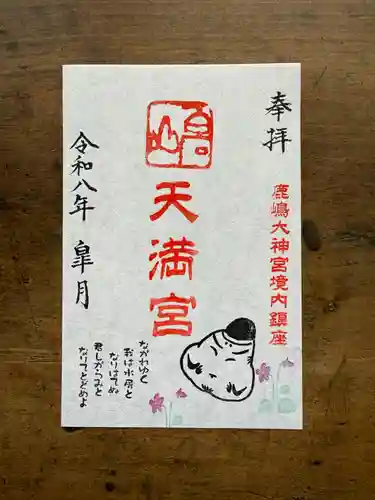 奉拝
鹿嶋大神宮境内鎮座
天満宮
令和八年 皐月
ながれゆく
我は水屑と
なりはてぬ
君しがらみと
なりてとどめよ